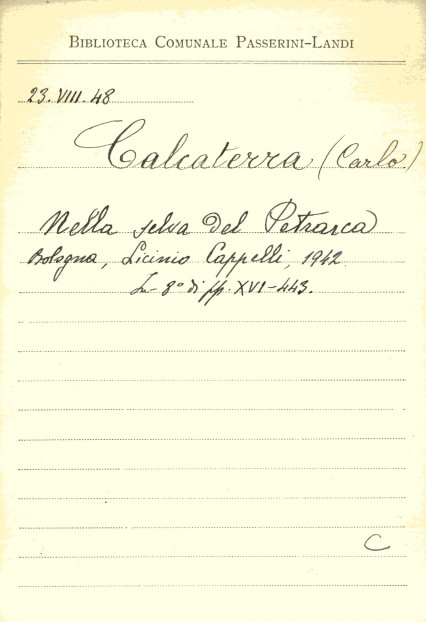 BIBLIOTECA COMUNALE PASSERINI-LANDI
23.VIII.48
Calcaterra (Carlo)
Nella selva del Petrarca
Bologna, Licinio Cappelli, 1942
In 8° di pp. XVI-443.
C